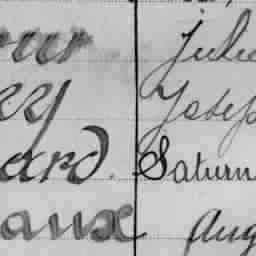 our Julie
zy Josep
ard. Saturn
aux Aug